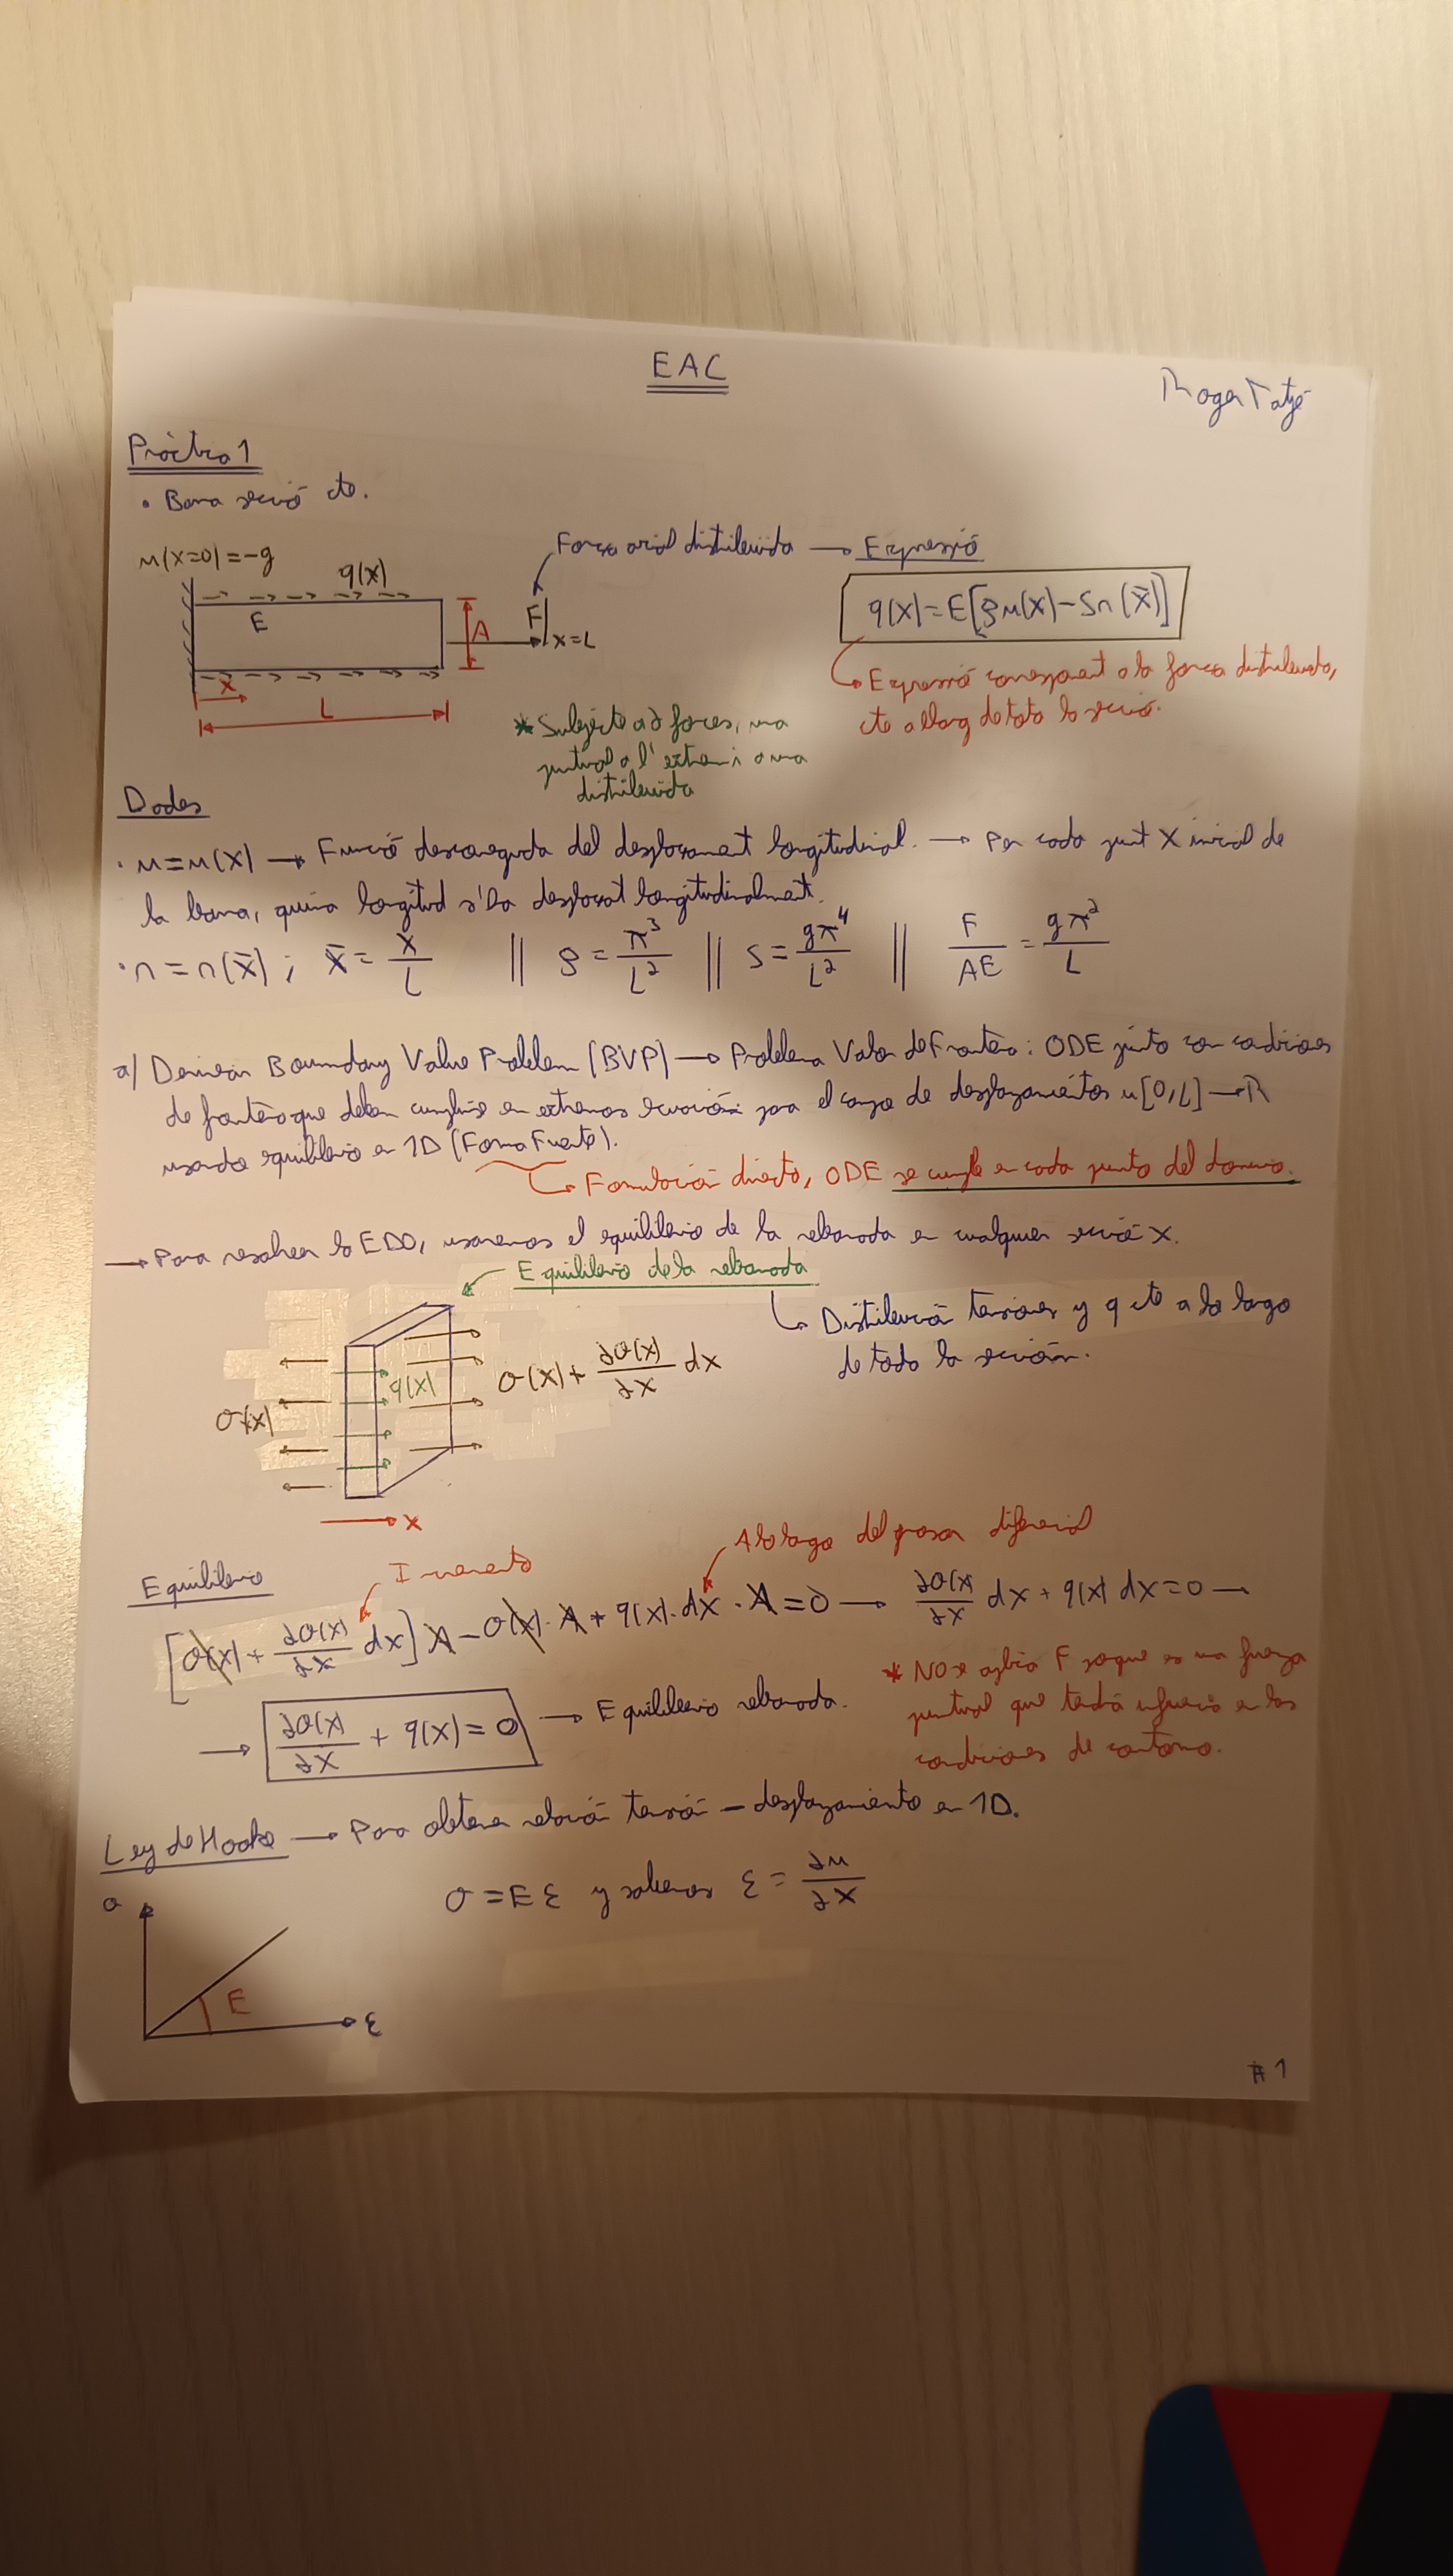 EAC
Roger Tatjé
Pràctica 1
• Barra secció cte.
u(x=0)=-g
q(x)
E
A
F|x=L
x
L
Força axial distribuida → Expressió
q(x)=E[ρu(x)-sr(x̄)]
↳ Expressió corresponent a la força distribuida,
cte al llarg de tota la secció.
* Subjecte a 2 forces, una
puntual a l'extrem i a una
distribuida
Dades
• u=u(x) → Funció desconeguda del desplaçament longitudinal. → Per cada punt x inicial de
la barra, quina longitud s'ha desplaçat longitudinalment.
• r=r(x̄) ; x̄=x/L || ρ=π³/L² || s=gπ⁴/L² || F/AE=gπ²/L
a) Derivar Boundary Value Problem (BVP) → Problema Valor de Frontera: ODE junto con condiciones
de frontera que deben cumplirse en extremos para el campo de desplazamientos u[0,L]→R
usando equilibrio en 1D (Forma Fuerte).
↳ Formulación directa, ODE se cumple en cada punto del dominio.
→ Para resolver la EDO, usaremos el equilibrio de la rebanada en cualquier secció x.
Equilibrio de la rebanada
↳ Distribución tensiones y q cte a lo largo
de toda la sección.
σ(x)
q(x)
σ(x)+∂σ(x)/∂x dx
x
Equilibrio
Incremento
A lo largo del grosor diferencial
[σ(x)+∂σ(x)/∂x dx]A-σ(x)·A+q(x)·dx·A=0 → ∂σ(x)/∂x dx+q(x)dx=0 →
→ ∂σ(x)/∂x+q(x)=0 → Equilibrio rebanada.
* NO se aplica F ya que es una fuerza
puntual que tendrá influencia en las
condiciones de contorno.
Ley de Hooke → Para obtener relación tensión - desplazamiento en 1D.
σ=Eε y sabemos ε=∂u/∂x
σ
E
ε
#1